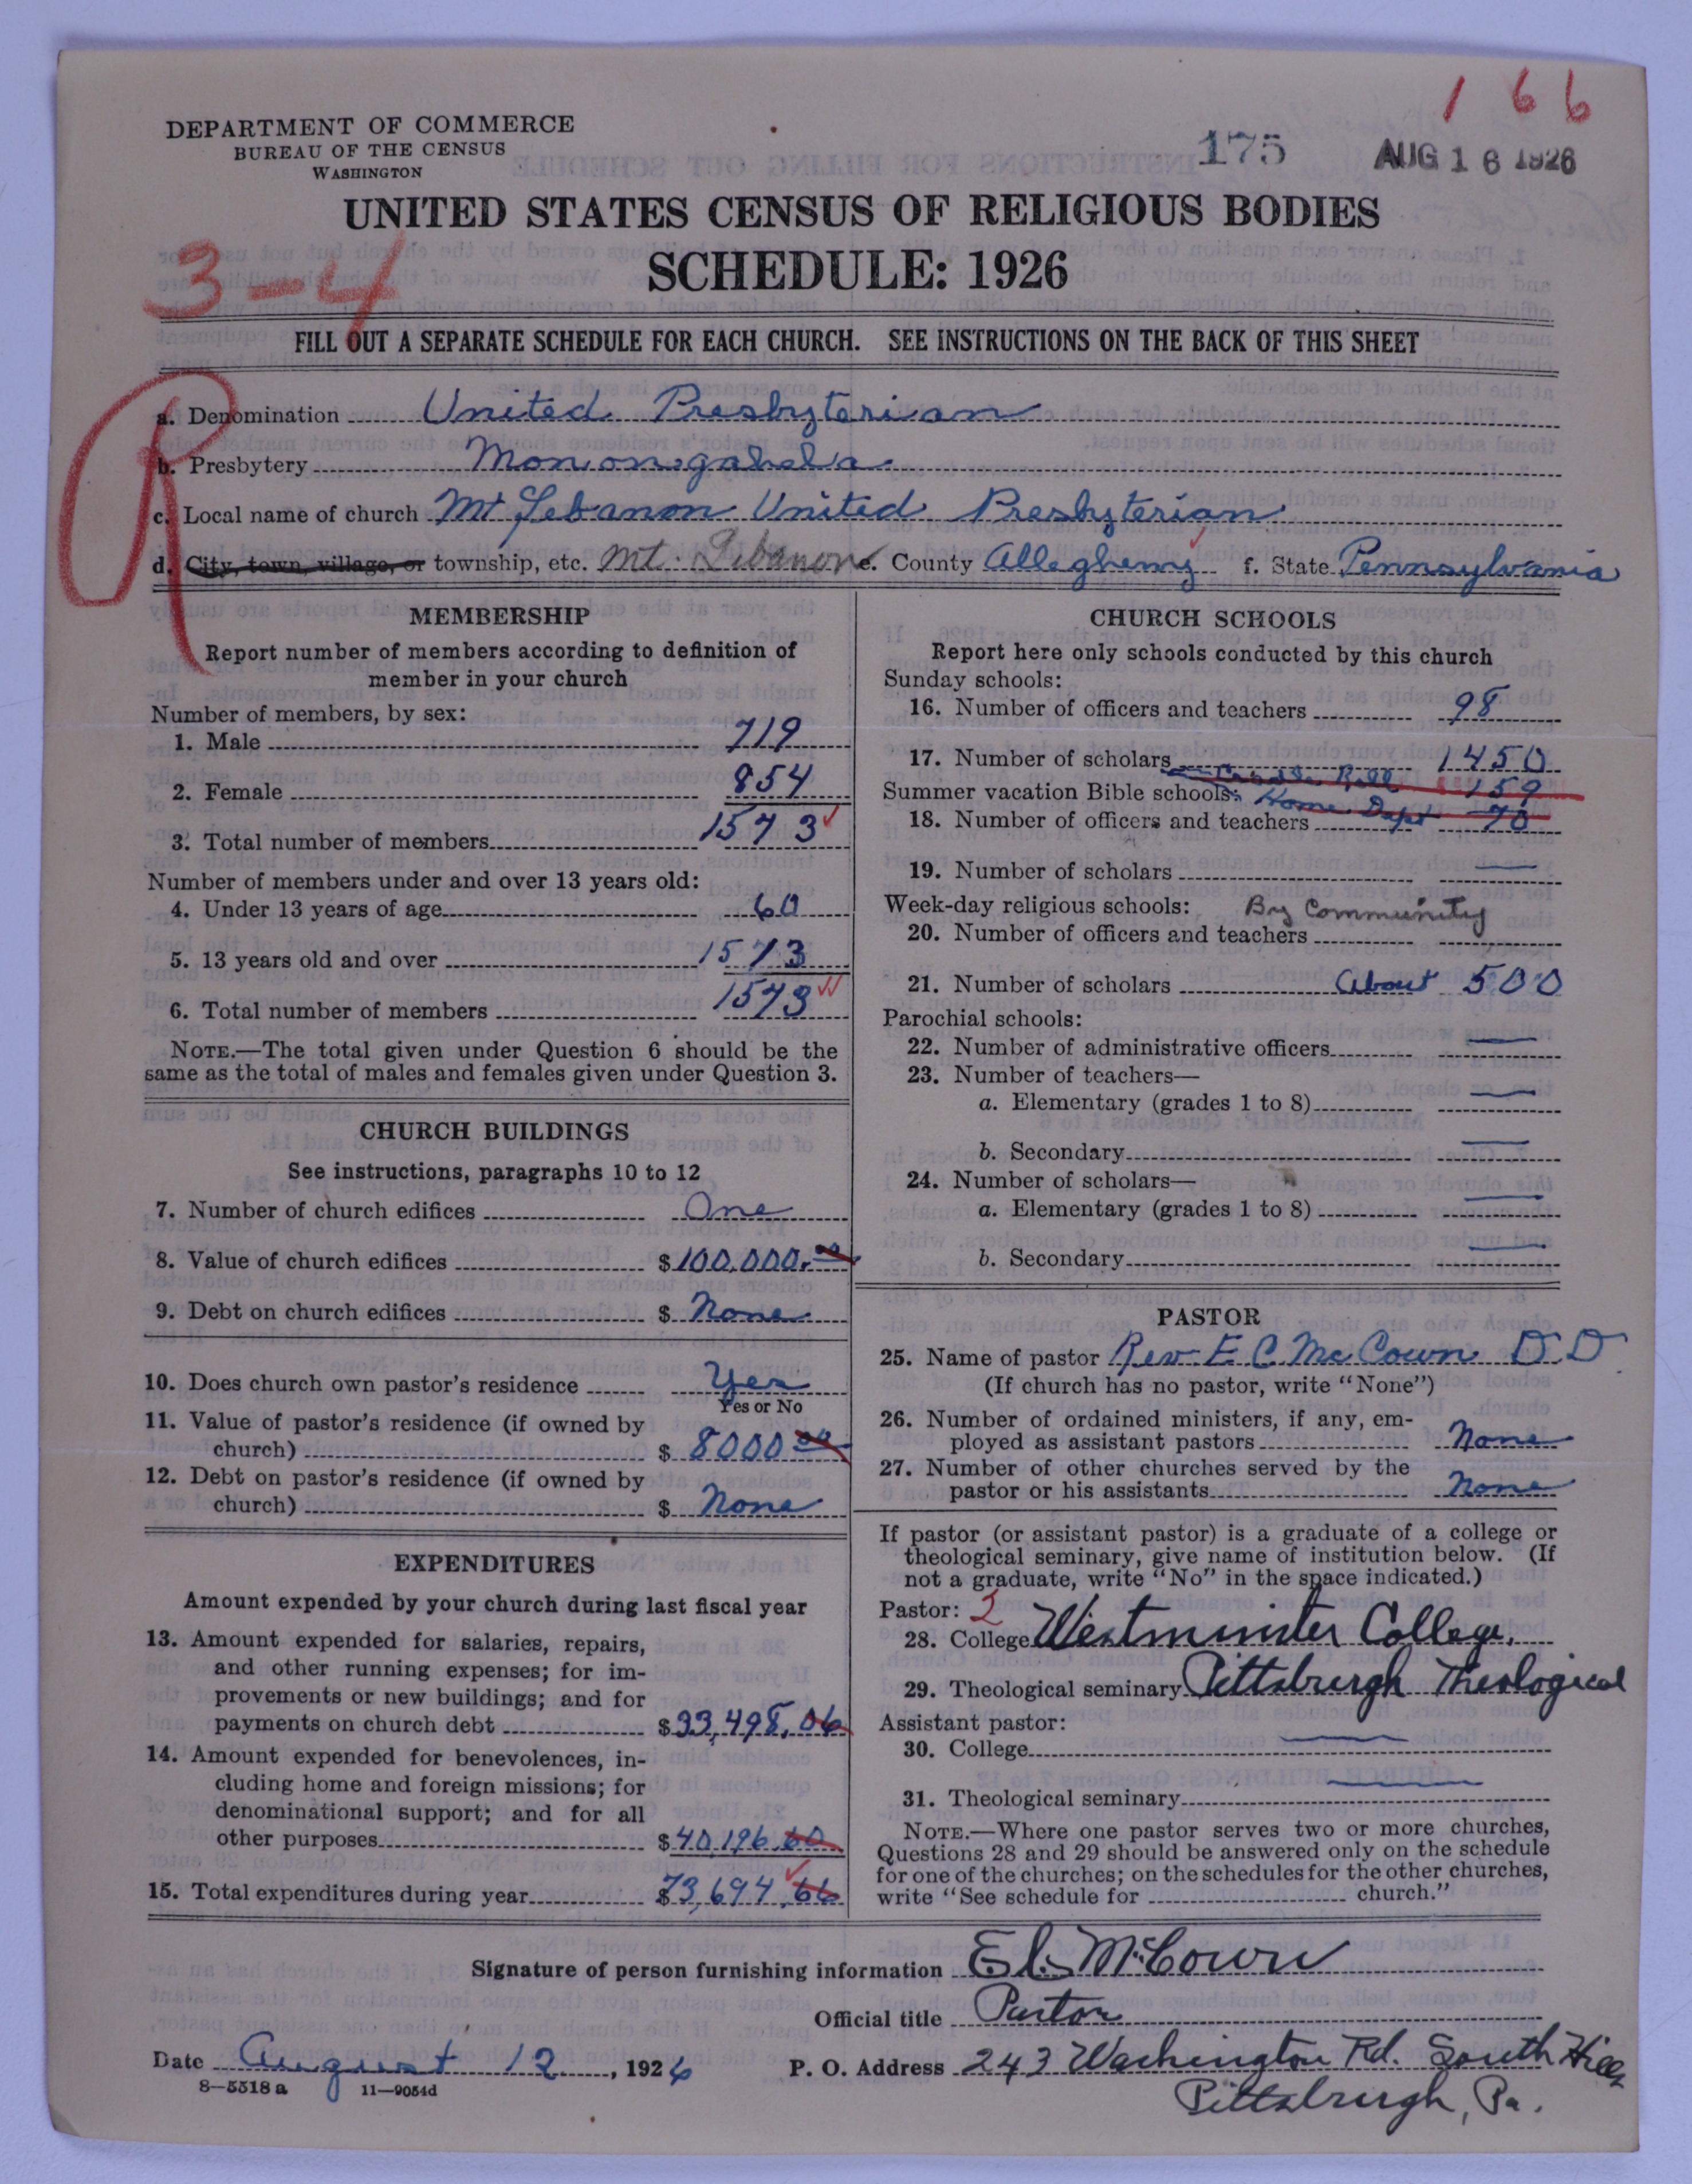 1 6 6
DEPARTMENT OF COMMERCE
BUREAU OF THE CENSUS
WASHINGTON
175
AUG 16 1926
UNITED STATES CENSUS OF RELIGIOUS BODIES
SCHEDULE: 1926
3-4
FILL OUT A SEPARATE SCHEDULE FOR EACH CHURCH. SEE INSTRUCTIONS ON THE BACK OF THIS SHEET
R
a. Denomination United Presbyterian
b. Presbytery Monongahela
c. Local name of church Mt Lebanon United Presbyterian
d. City, town, village, or township, etc. Mt. Lebanon e. County Allegheny f. State Pennsylvania
MEMBERSHIP
Report number of members according to definition of
member in your church
Number of members, by sex:
1. Male 719
2. Female 854
3. Total number of members 1573
Number of members under and over 13 years old:
4. Under 13 years of age 60
5. 13 years old and over 1573
6. Total number of members 1573
NOTE.—The total given under Question 6 should be the
same as the total of males and females given under Question 3.
CHURCH BUILDINGS
See instructions, paragraphs 10 to 12
7. Number of church edifices One
8. Value of church edifices $100,000.00
9. Debt on church edifices $ None
10. Does church own pastor's residence Yes
Yes or No
11. Value of pastor's residence (if owned by
church) $ 8000 00
12. Debt on pastor's residence (if owned by
church) $ None
EXPENDITURES
Amount expended by your church during last fiscal year
13. Amount expended for salaries, repairs,
and other running expenses; for im-
provements or new buildings; and for
payments on church debt $33,498.06
14. Amount expended for benevolences, in-
cluding home and foreign missions; for
denominational support; and for all
other purposes $40,196.60
15. Total expenditures during year $73,694.66
CHURCH SCHOOLS
Report here only schools conducted by this church
Sunday schools:
16. Number of officers and teachers 98
17. Number of scholars 1450
Cradle Roll 159
Summer vacation Bible schools: Home Dept 70
18. Number of officers and teachers
19. Number of scholars —
Week-day religious schools: By Community
20. Number of officers and teachers
21. Number of scholars About 500
Parochial schools:
22. Number of administrative officers —
23. Number of teachers—
a. Elementary (grades 1 to 8) —
b. Secondary —
24. Number of scholars—
a. Elementary (grades 1 to 8) —
b. Secondary —
PASTOR
25. Name of pastor Rev E C McCown D D
(If church has no pastor, write "None")
26. Number of ordained ministers, if any, em-
ployed as assistant pastors None
27. Number of other churches served by the
pastor or his assistants None
If pastor (or assistant pastor) is a graduate of a college or
theological seminary, give name of institution below. (If
not a graduate, write "No" in the space indicated.)
Pastor: 2
28. College Westminster College,
29. Theological seminary Pittsburgh Theological
Assistant pastor:
30. College —
31. Theological seminary —
NOTE.—Where one pastor serves two or more churches,
Questions 28 and 29 should be answered only on the schedule
for one of the churches; on the schedules for the other churches,
write "See schedule for church."
Signature of person furnishing information E C McCown
Official title Pastor
Date August 12, 1926 P. O. Address 243 Washington Rd. South Hills
8-5518 a 11-9054d
Pittsburgh, Pa.